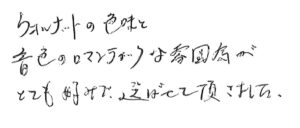 ウォルナットの色味と
音色のロマンティックな雰囲気が
とても好みで、選ばせて頂きました。